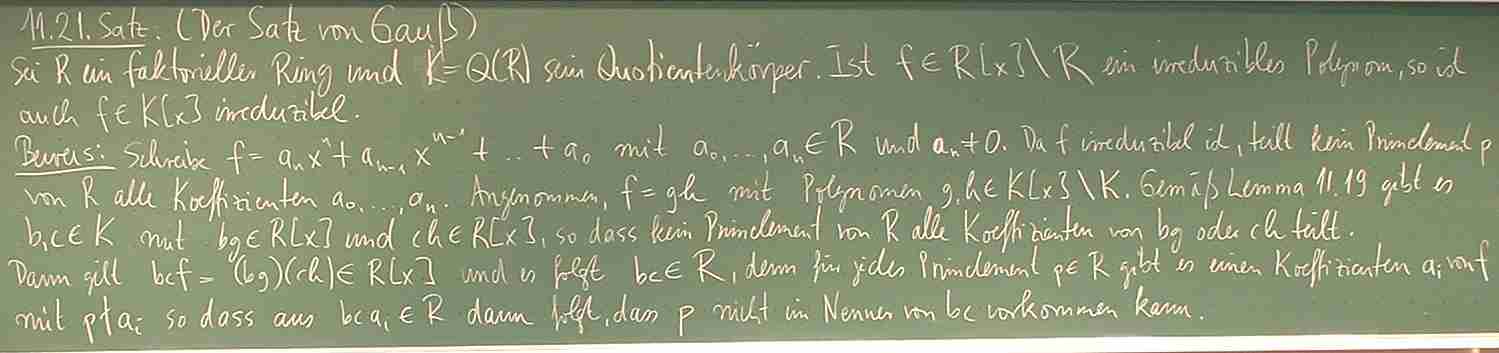 11.21. Satz. (Der Satz von Gauß)
Sei R ein faktorieller Ring und K = Q(R) sein Quotientenkörper. Ist f ∈ R[x] \ R ein irreduzibles Polynom, so ist
auch f ∈ K[x] irreduzibel.
Beweis: Schreibe f = aₙxⁿ + aₙ₋₁xⁿ⁻¹ + .. + a₀ mit a₀,...,aₙ ∈ R und aₙ ≠ 0. Da f irreduzibel ist, teilt kein Primelement p
von R alle Koeffizienten a₀,...,aₙ. Angenommen, f = gh mit Polynomen g,h ∈ K[x] \ K. Gemäß Lemma 11.19 gibt es
b,c ∈ K mit bg ∈ R[x] und ch ∈ R[x], so dass kein Primelement von R alle Koeffizienten von bg oder ch teilt.
Dann gilt bcf = (bg)(ch) ∈ R[x] und es folgt bc ∈ R, denn für jedes Primelement p ∈ R gibt es einen Koeffizienten aᵢ von f
mit p ∤ aᵢ so dass aus bcaᵢ ∈ R dann folgt, dass p nicht im Nenner von bc vorkommen kann.